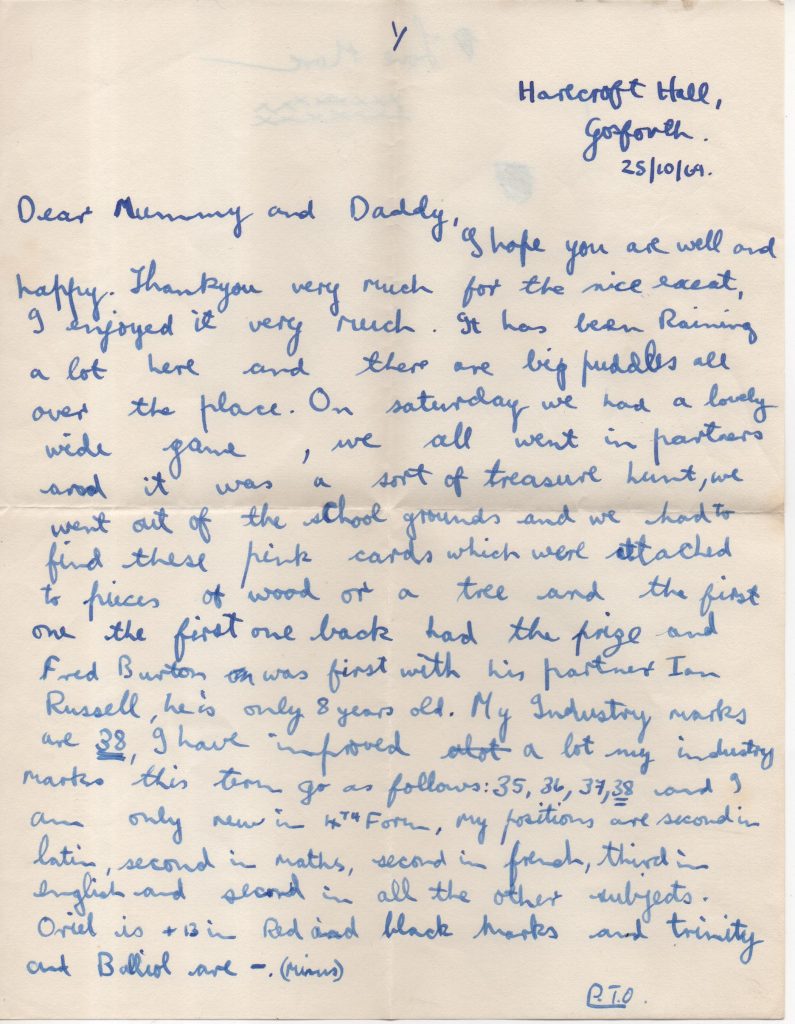 1/
Harecroft Hall,
Gosforth.
25/10/69.
Dear Mummy and Daddy,
I hope you are well and
happy. Thankyou very much for the nice exeat,
I enjoyed it very much. It has been Raining
a lot here and there are big puddles all
over the place. On saturday we had a lovely
wide game, we all went in partners
and it was a sort of treasure hunt, we
went out of the school grounds and we had to
find these pink cards which were attached
to pieces of wood or a tree and the first
one the first one back had the prize and
Fred Burton was first with his partner Ian
Russell, he is only 8 years old. My Industry marks
are 38, I have improved alot a lot my industry
marks this term go as follows: 35, 36, 37, 38 and I
am only new in 4TH Form, my positions are second in
latin, second in maths, second in french, third in
english and second in all the other subjects.
Oriel is +13 in Red and black marks and trinity
and Balliol are -. (minus)
P.T.O.